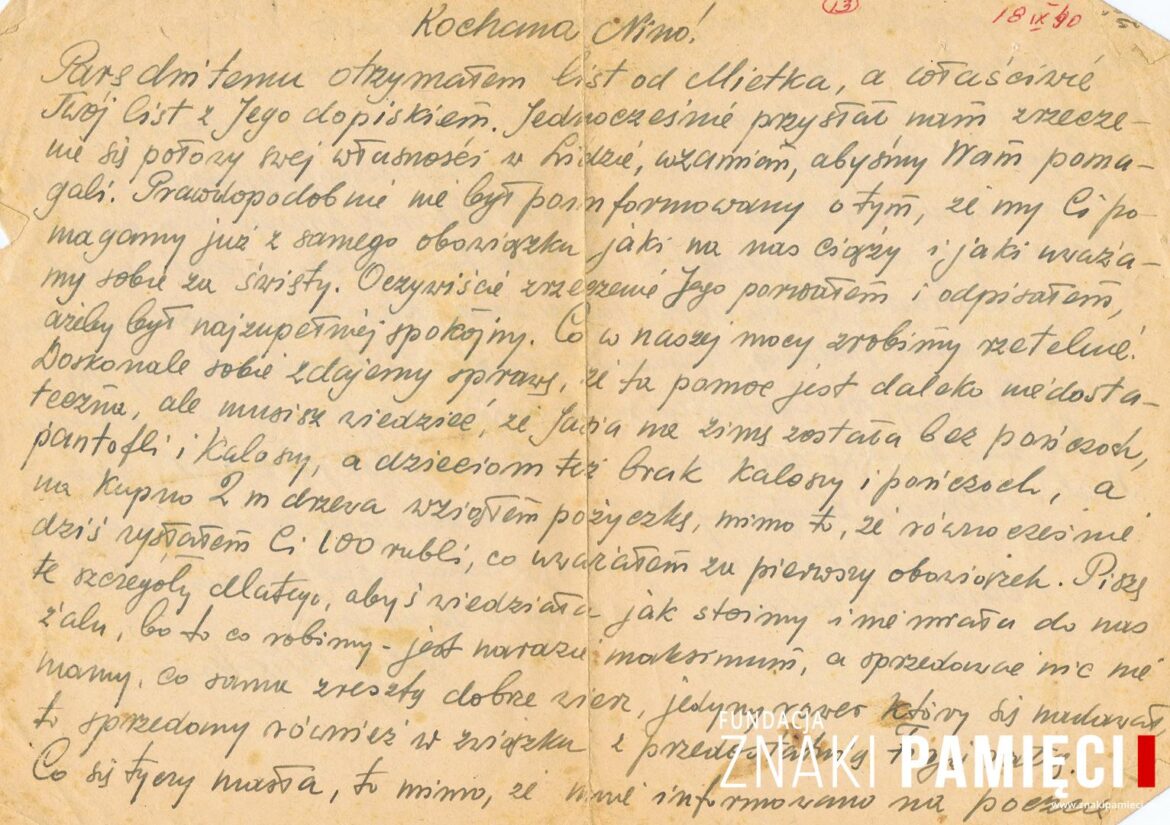 13
18 IX 90
Kochana Nino!
Parę dni temu otrzymałem list od Mietka, a właściwie
Twój list z Jego dopiskiem. Jednocześnie przysłał nam zrzecze-
nie się połowy swej własności w Lidzie, wzamian, abyśmy Wam poma-
gali. Prawdopodobnie nie był poinformowany o tym, że my Ci po-
magamy już z samego obowiązku jaki na nas ciąży i jaki uważa-
my sobie za święty. Oczywiście zrzeczenie Jego porwałem i odpisałem,
ażeby był najzupełniej spokojny. Co w naszej mocy zrobimy rzetelnie.
Doskonale sobie zdajemy sprawę, że ta pomoc jest daleko niedosta-
teczna, ale musisz wiedzieć, że Jasia na zimę została bez pończoch,
pantofli i kaloszy, a dzieciom też brak kaloszy i pończoch, a
na kupno 2 m drzewa wziąłem pożyczkę, mimo to, że równocześnie
dziś wysłałem Ci 100 rubli, co uważałem za pierwszy obowiązek. Piszę
te szczegóły dlatego, abyś wiedziała jak stoimy i nie miała do nas
żalu, bo to co robimy - jest narazie maksimum, a sprzedawać nic nie
mamy, co sama zresztą dobrze wiesz, jedyny rower który się nadawał
to sprzedamy również w związku z
Co się tyczy masła, to mimo, że mnie informowano na poczcie
FUNDACJA
ZNAKI PAMIĘCI
www.znakipamieci